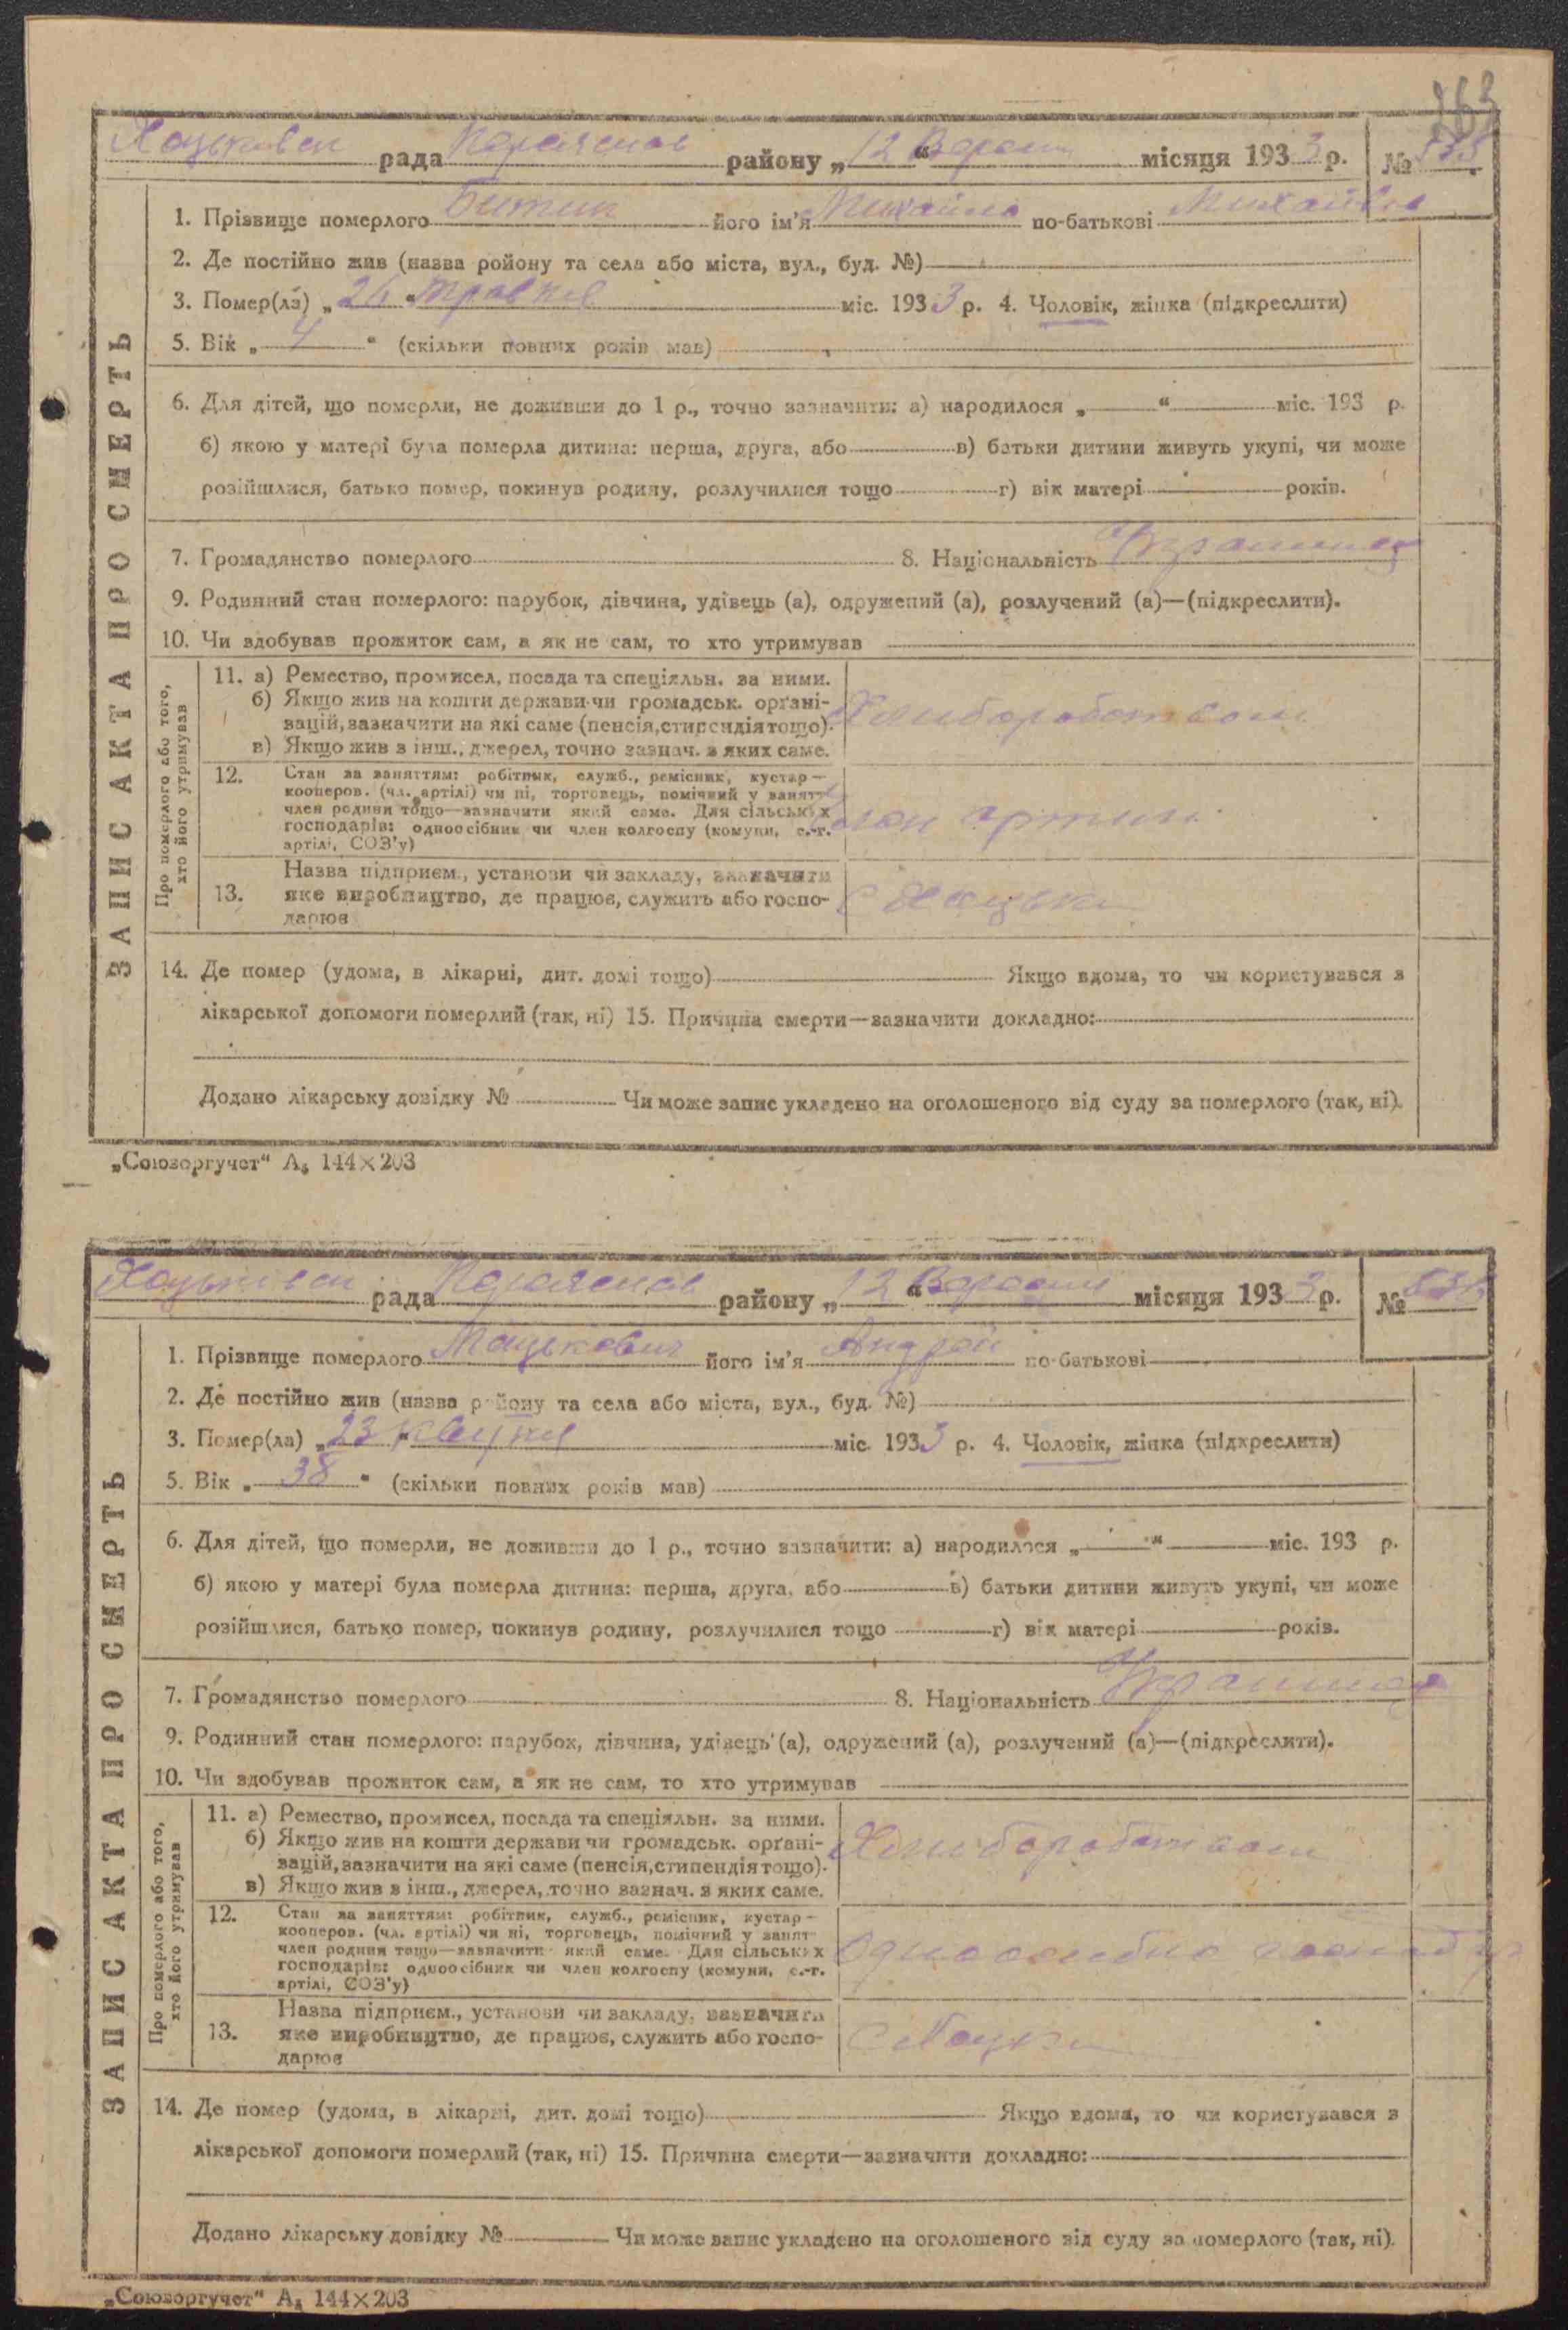 рада Переяслав району „12“ Вересня місяця 1933 р. №
1. Прізвище померлого його ім'я Михайло по-батькові Михайлов
2. Де постійно жив (назва ройону та села або міста, вул., буд. №)
3. Помер(ла) „26“ травня міс. 1933 р. 4. Чоловік, жінка (підкреслити)
5. Вік „4“ (скільки повних років мав)
6. Для дітей, що померли, не доживши до 1 р., точно зазначити: а) народилося „ “ міс. 193 р.
б) якою у матері була померла дитина: перша, друга, або в) батьки дитини живуть укупі, чи може
розійшлися, батько помер, покинув родину, розлучилися тощо г) вік матері років.
7. Громадянство померлого 8. Національність Українець
9. Родинний стан померлого: парубок, дівчина, удівець (а), одружений (а), розлучений (а)—(підкреслити).
10. Чи здобував прожиток сам, а як не сам, то хто утримував
ЗАПИС АКТА ПРО СМЕРТЬ
Про померлого або того,
хто його утримував
11. а) Ремество, промисел, посада та спеціяльн. за ними.
б) Якщо жив на кошти держави чи громадськ. орґані-
зацій, зазначити на які саме (пенсія, стипендія тощо).
в) Якщо жив з інш., джерел, точно зазнач. з яких саме.
Хліборобством
12. Стан за заняттям: робітник, служб., ремісник, кустар—
кооперов. (чл. артілі) чи ні, торговець, помічний у занят-
член родини тощо—зазначити який саме. Для сільських
господарів: одноосібник чи член колгоспу (комуни, с.-г.
артілі, СОЗ'у)
Член артіли
13. Назва підприєм., установи чи закладу, зазначити
яке виробництво, де працює, служить або госпо-
дарює
С Хоцьки
14. Де помер (удома, в лікарні, дит. домі тощо) Якщо вдома, то чи користувався з
лікарської допомоги померлий (так, ні) 15. Причина смерти—зазначити докладно:
Додано лікарську довідку № Чи може запис укладено на оголошеного від суду за померлого (так, ні).
„Союзоргучет“ А₅ 144×203
рада Переяслав району „12“ Вересня місяця 1933 р. №
1. Прізвище померлого Мацькович його ім'я Андрій по-батькові
2. Де постійно жив (назва району та села або міста, вул., буд. №)
3. Помер(ла) „23“ квітня міс. 1933 р. 4. Чоловік, жінка (підкреслити)
5. Вік „38“ (скільки повних років мав)
6. Для дітей, що померли, не доживши до 1 р., точно зазначити: а) народилося „ “ міс. 193 р.
б) якою у матері була померла дитина: перша, друга, або в) батьки дитини живуть укупі, чи може
розійшлися, батько помер, покинув родину, розлучилися тощо г) вік матері років.
7. Громадянство померлого 8. Національність Українец
9. Родинний стан померлого: парубок, дівчина, удівець (а), одружений (а), розлучений (а)—(підкреслити).
10. Чи здобував прожиток сам, а як не сам, то хто утримував
ЗАПИС АКТА ПРО СМЕРТЬ
Про померлого або того,
хто його утримував
11. а) Ремество, промисел, посада та спеціяльн. за ними.
б) Якщо жив на кошти держави чи громадськ. орґані-
зацій, зазначити на які саме (пенсія, стипендія тощо).
в) Якщо жив з інш., джерел, точно зазнач. з яких саме.
Хліборобством
12. Стан за заняттям: робітник, служб., ремісник, кустар—
кооперов. (чл. артілі) чи ні, торговець, помічний у занят-
член родини тощо—зазначити який саме. Для сільських
господарів: одноосібник чи член колгоспу (комуни, с.-г.
артілі, СОЗ'у)
13. Назва підприєм., установи чи закладу, зазначити
яке виробництво, де працює, служить або госпо-
дарює
С Хоцьки
14. Де помер (удома, в лікарні, дит. домі тощо) Якщо вдома, то чи користувався з
лікарської допомоги померлий (так, ні) 15. Причина смерти—зазначити докладно:
Додано лікарську довідку № Чи може запис укладено на оголошеного від суду за померлого (так, ні).
„Союзоргучет“ А₅ 144×203